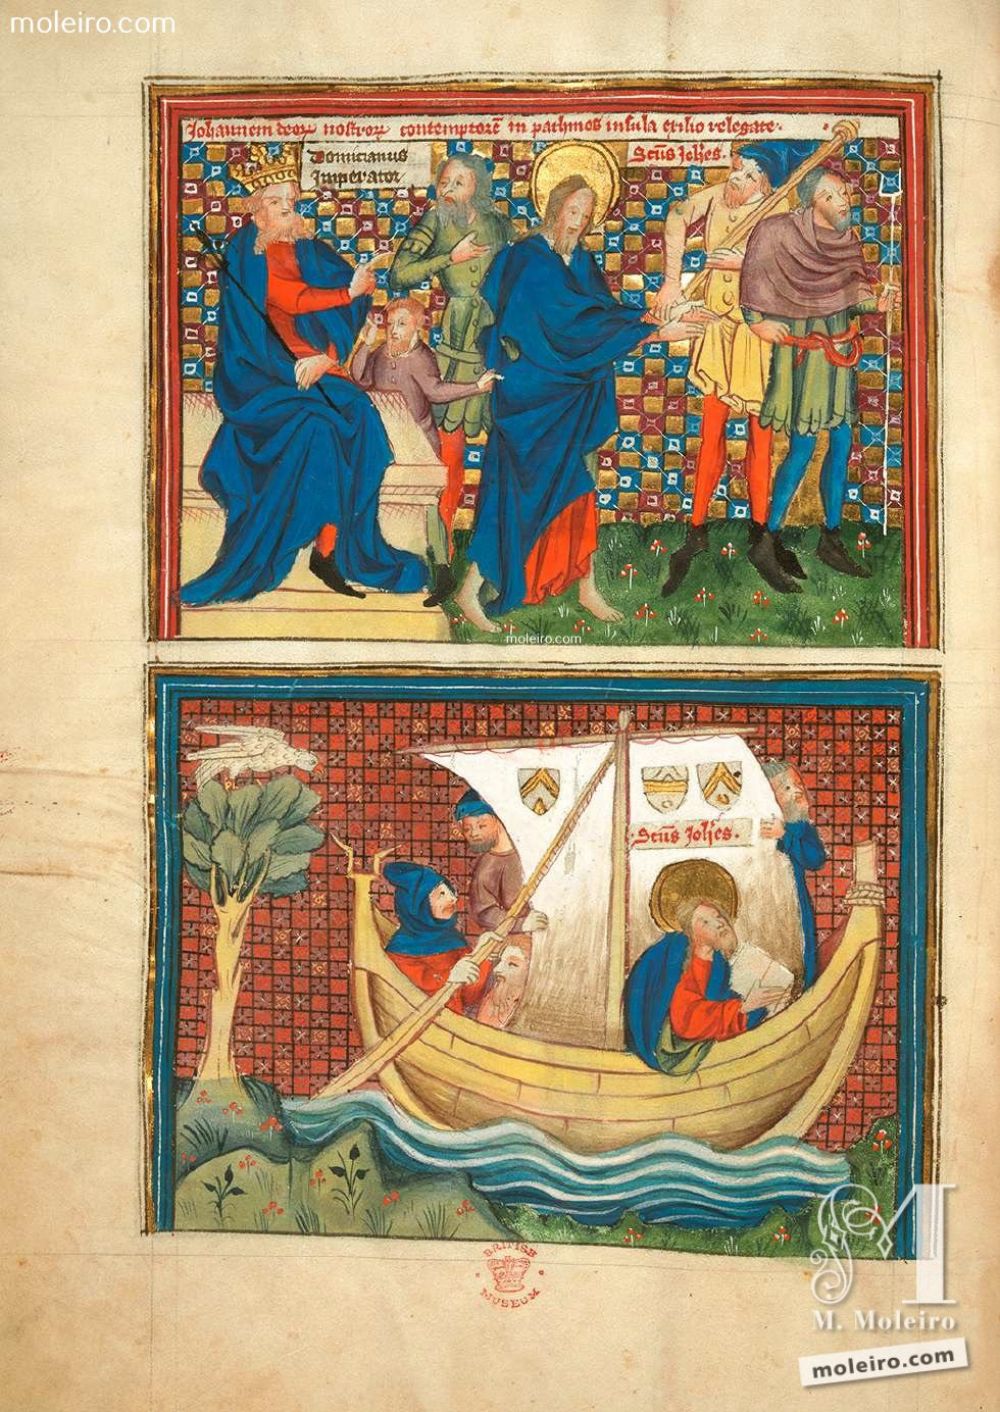 moleiro.com
Johannem deoꝝ nostroꝝ contemptorē in pathmos insula exilio relegate.
Domicianus
Imperator
Sctūs Joh̄es.
moleiro.com
Sctūs Joh̄es.
BRITISH
MUSEUM
M
M. Moleiro
moleiro.com